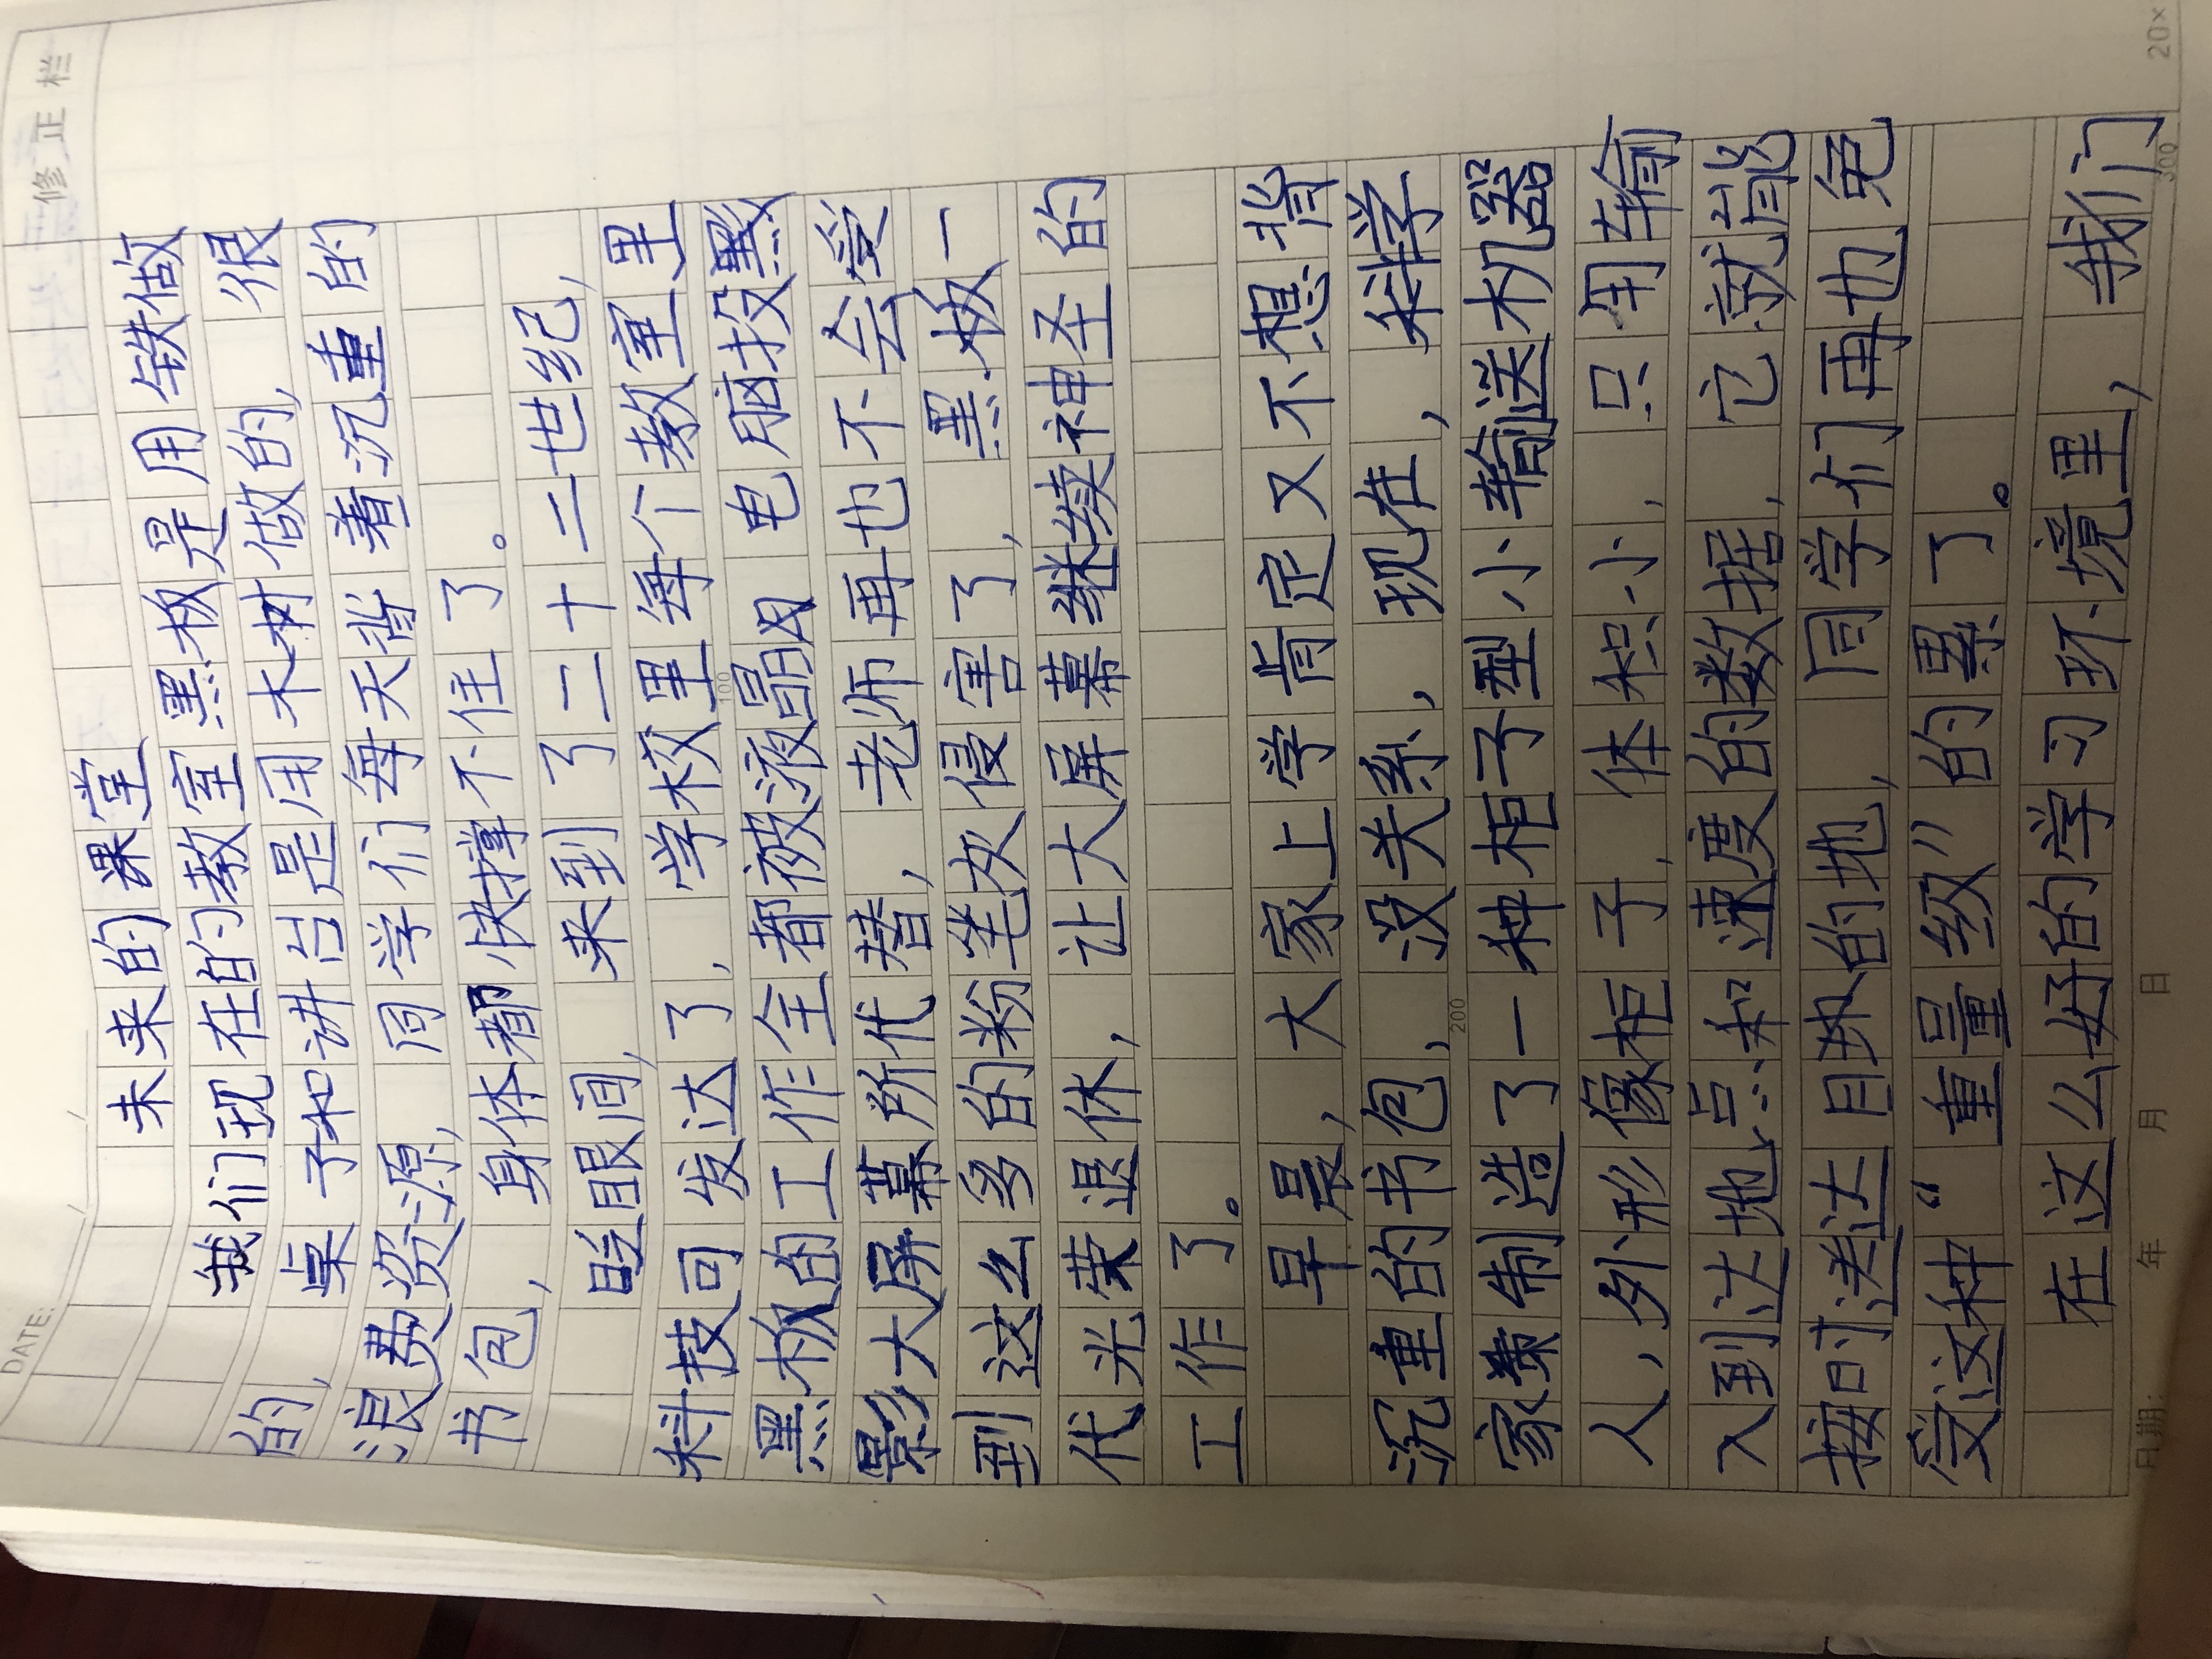 修正栏
DATE:
未来的课堂
我们现在的教室黑板是用铁做
的,桌子和讲台是用木材做的,很
浪费资源,同学们每天背着沉重的
书包,身体都快撑不住了。
眨眼间,来到了二十二世纪,
科技可发达了,学校里每个教室里
黑板的工作全都被液晶电脑投
影大屏幕所代替,老师再也不会受
到这么多的粉笔灰侵害了,黑板一
代光荣退休,让大屏幕继续神圣的
工作了。
早晨,大家上学肯定又不想背
沉重的书包,没关系,现在,科学
家制造了一种柜子型小输送机器
人,外形像柜子,体积小,只用输
入到达地点和速度的数据,它就能
按时送达目的地,同学们再也免
受这种“重量级”的累了。
在这么好的学习环境里,我们
100
200
300
日期: 年 月 日
20×